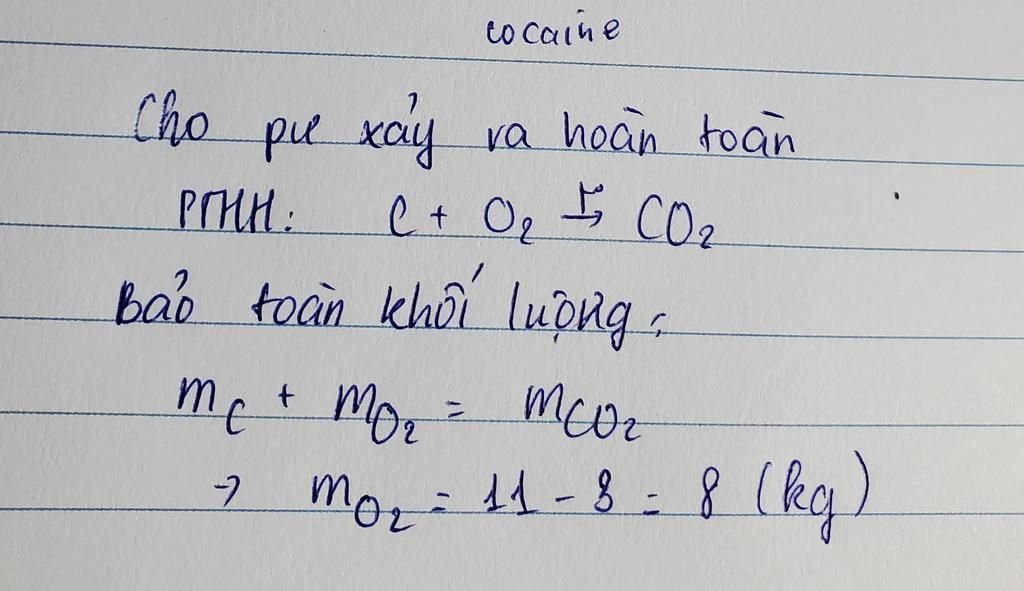 cocaine
Cho pư xảy ra hoàn toàn
PTHH: C + O₂ → CO₂
Bảo toàn khối lượng:
m_C + m_O₂ = m_CO₂
→ m_O₂ = 11 - 3 = 8 (kg)